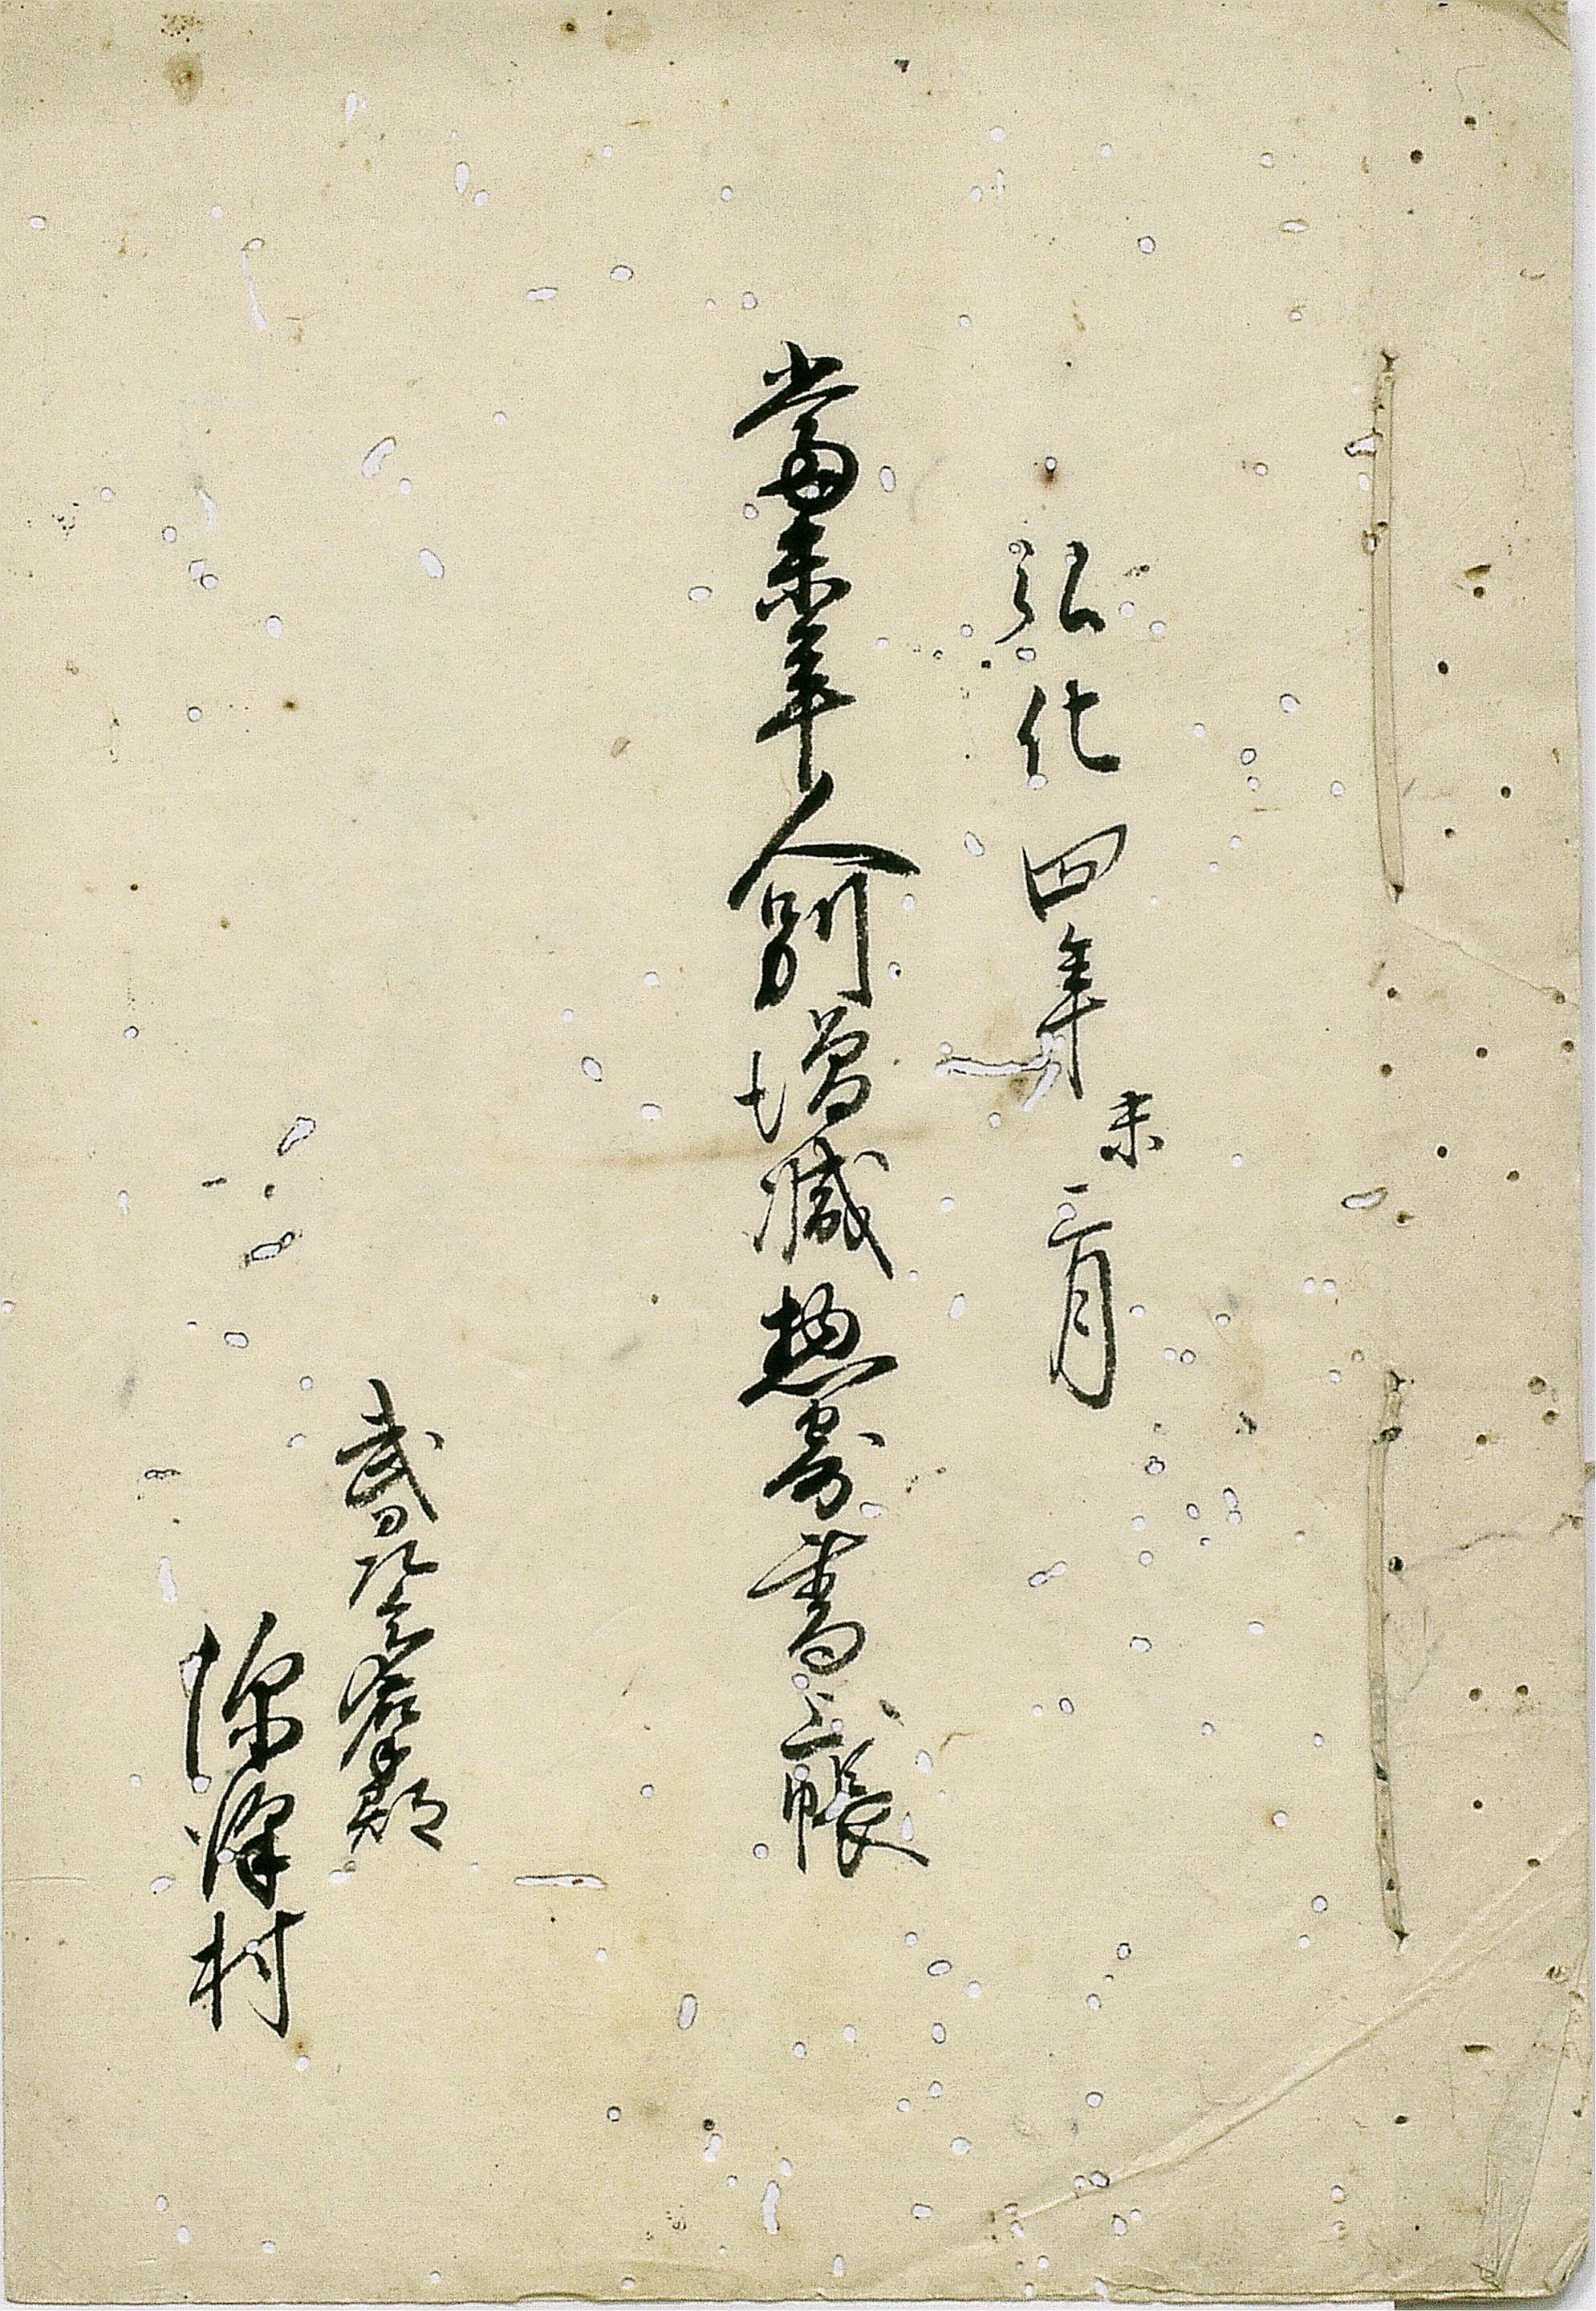 弘化四年未三月
當未年人別増減惣寄書上帳
武 郡
深澤村